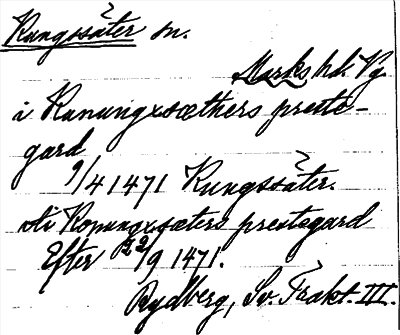 Kungssäter sn.
Marks hd. Vg.
i Kanungxsæthers preste-
gard
9/4 1471 Kungssäter.
vti Konungxsæters prestegard
Efter 22/9 1471.
Rydberg, Sv. Trakt. III.